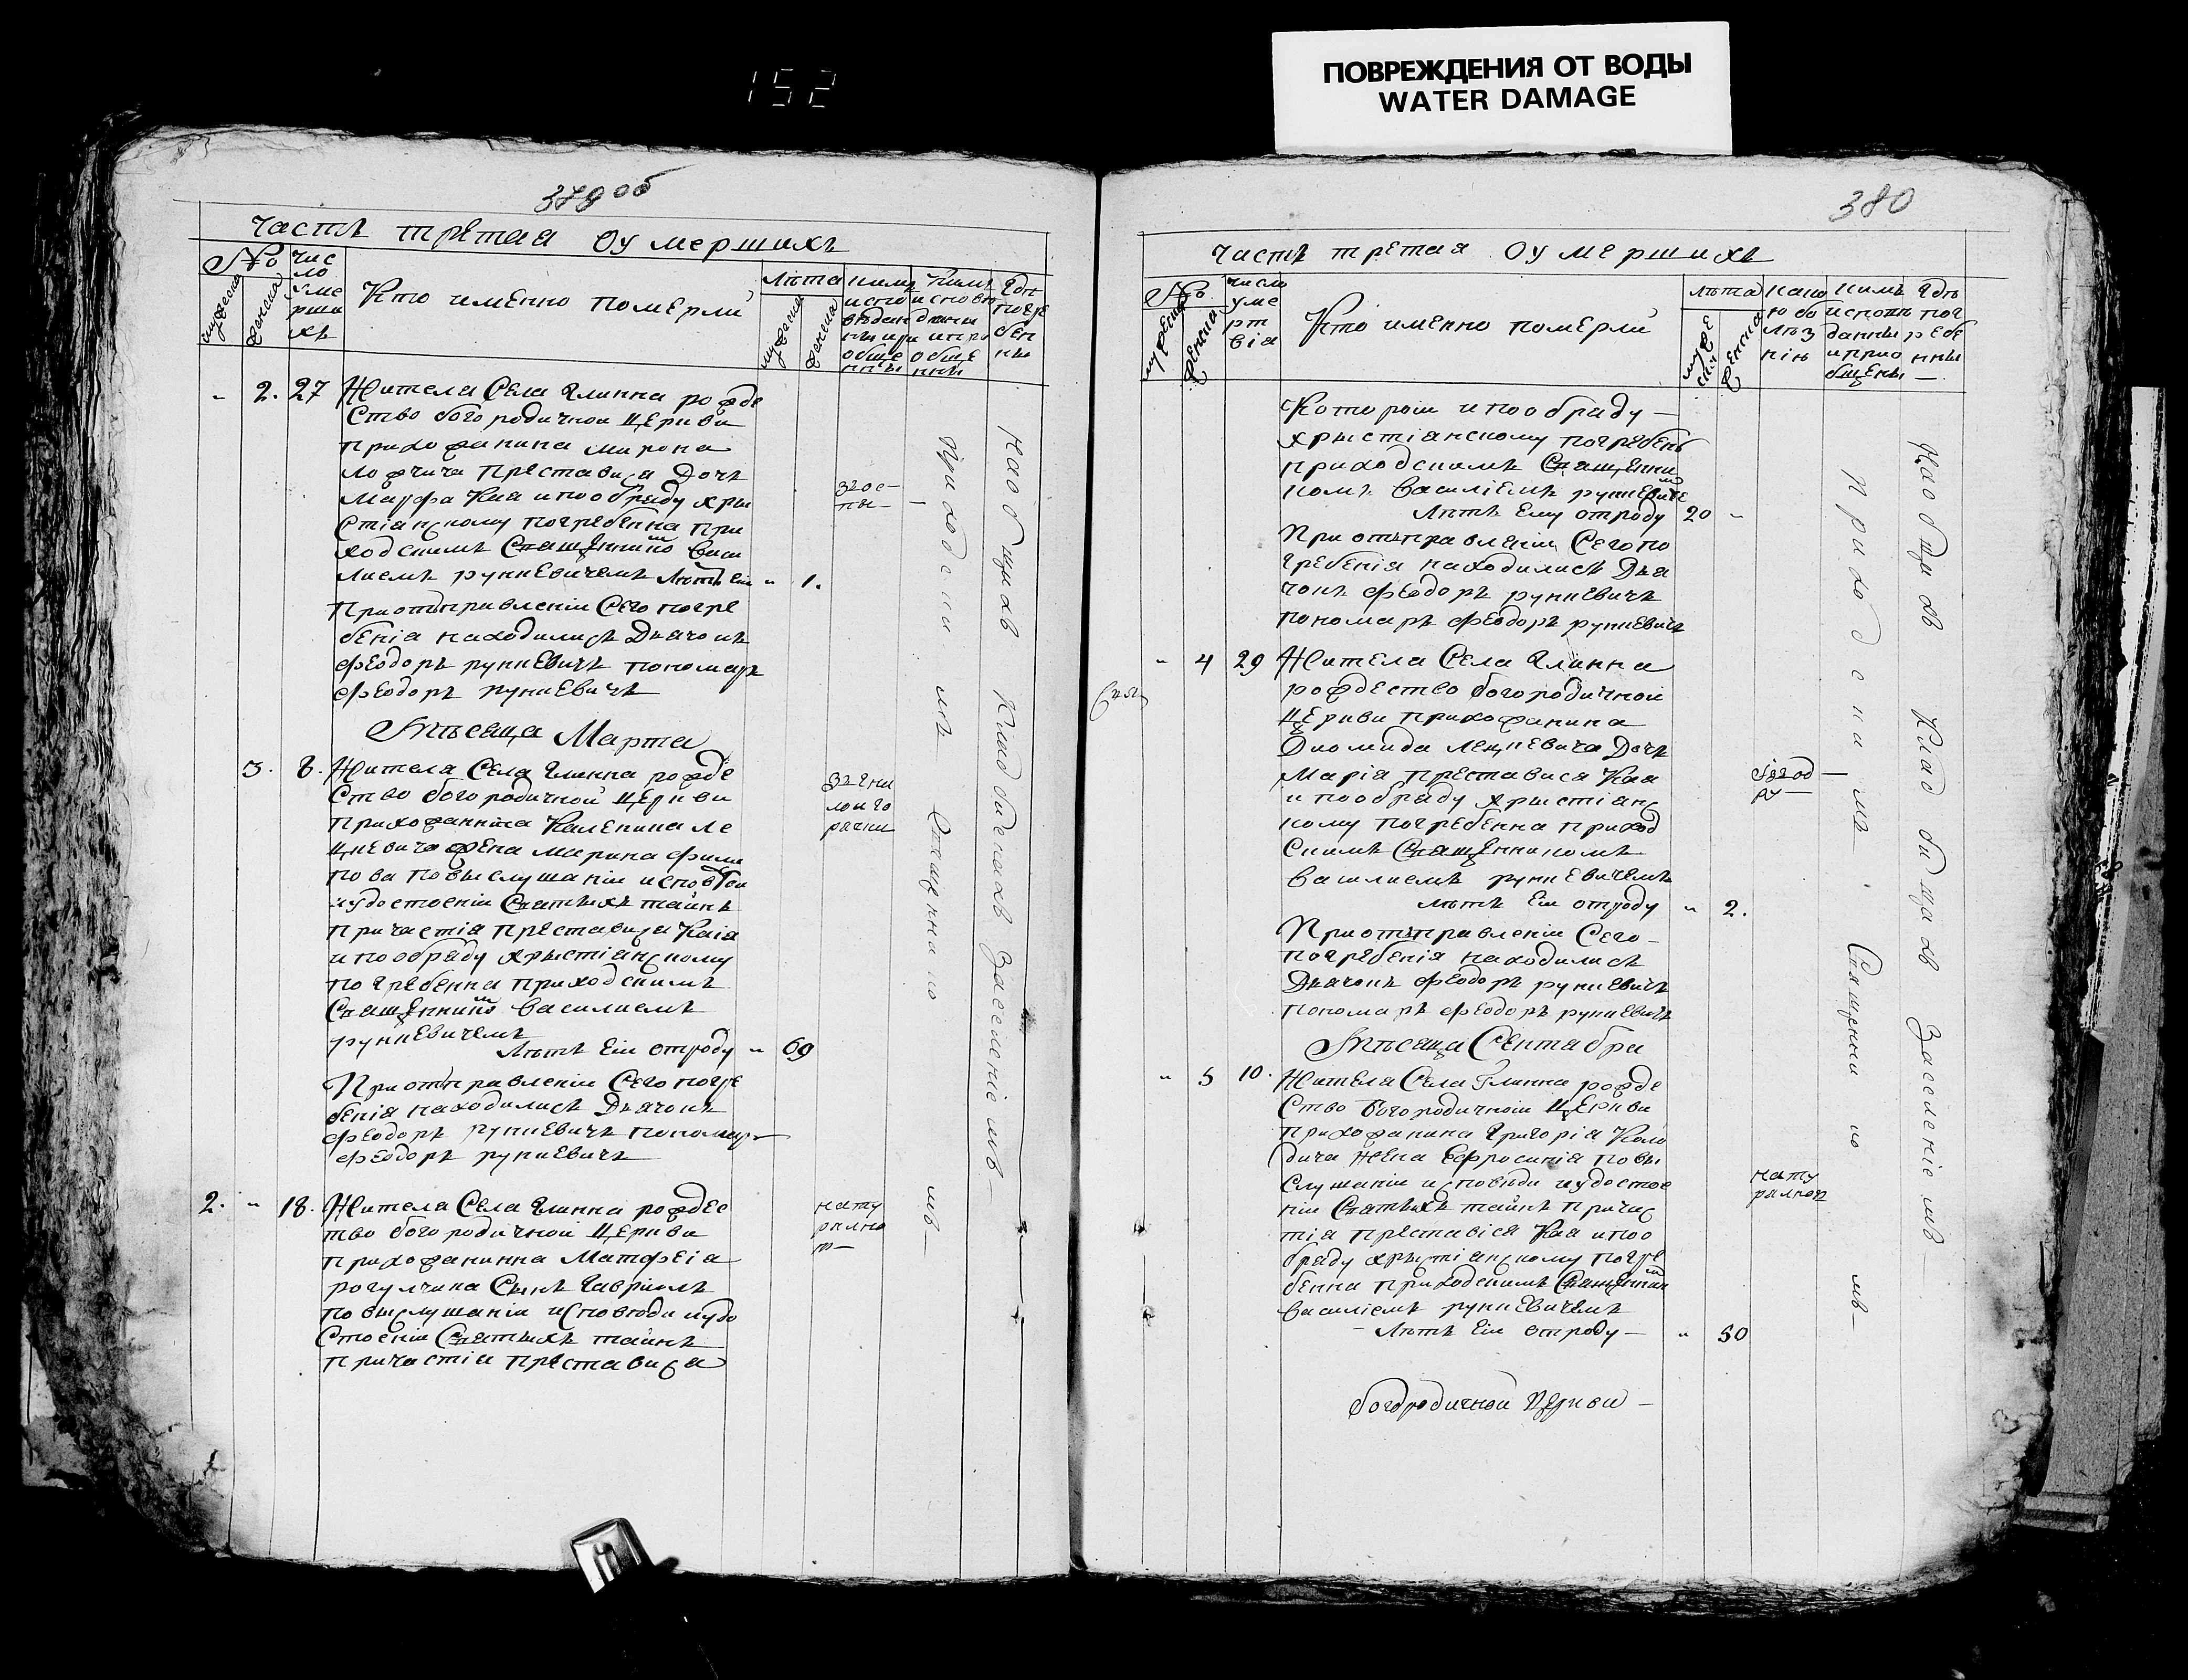 152
ПОВРЕЖДЕНИЯ ОТ ВОДЫ
WATER DAMAGE
379 об
часть третая оумершихъ
№
чис
ло
уме
рши
хъ
Кто именно померли
лѣта
мужеска
женска
2. 27 Жителя Села Глинна рожде
ство богородичной церкви
прихожанина мирона
преставися Дочь
Марфа Кая и по обряду хри
стіанскому погребенна при
ходскимъ Священнико Васи
лиемъ рункевичемъ лѣтъ ей " 1.
При отправленіи Сего погре
бенія находились Дьячокъ
Феодоръ рункевичъ пономарь
Феодоръ рункевичъ
Мѣсяца Марта
3. 8. Жителя Села Глинна рожде
ство богородичной церкви
прихожанина Каленика Ле
цкевича жена Марина Фили
пова по выслушаніи исповѣди
и удостоеніи Святыхъ тайнъ
причастія преставися Каія
и по обряду христіанскому
погребенна приходскимъ
Священнико Василиемъ
рункевичемъ
лѣтъ ей отроду " 69
При отправленіи Сего погре
бенія находились Дьячокъ
Феодоръ рункевичъ пономарь
Феодоръ рункевичъ
2. " 18. Жителя Села Глинна рождес
тво богородичной церкви
прихожанинна Матфеіа
рогулчика Сынъ Гавріилъ
по выслушаніи исповѣди и удо
стоеніи Святыхъ тайнъ
причастіи преставися
нату
рално
приходскимъ Священникомъ
на общихъ кладбискахъ
380
часть третая оумершихъ
№
число
уме
рт
вія
Кто именно померли
лѣта
Которій и по обряду
христіанскому погребенъ
приходскимъ Священни
комъ Василіемъ рункевиче
лѣтъ ему отроду 20 "
При отправленіи Сего по
гребенія находились Дья
чокъ Феодоръ рункевичъ
пономарь Феодоръ рункевичъ
" 4 29 Жителя Села Глинна
рождество богородичной
церкви прихожанина
Диомида Лецкевича Дочь
Марія преставися Кая
и по обряду христіанс
кому погребенна приход
скимъ Священникомъ
Василиемъ рункевичемъ
лѣтъ ей отроду " 2.
При отправленіи Сего
погребенія находились
Дьячокъ Феодоръ рункевичъ
пономаръ Феодоръ рункевичъ
Мѣсяца Сентабри
" 5 10. Жителя Села Глинна рожде
ство богородичной церкви
прихожанина Григорія Коло
дича жена Ефросинія по вы
слушаніи исповѣди и удостое
ніи Святыхъ тайнъ причас
тія преставіся Кая и по о
бряду христіанскому погре
бенна приходскимъ Священник
Василіемъ рункевичемъ
лѣтъ ей отроду " 50
нату
ралной
приходскимъ Священникомъ
богородичной церкви